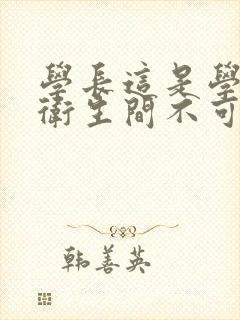 學長這是學
衛生間不可
韩善英